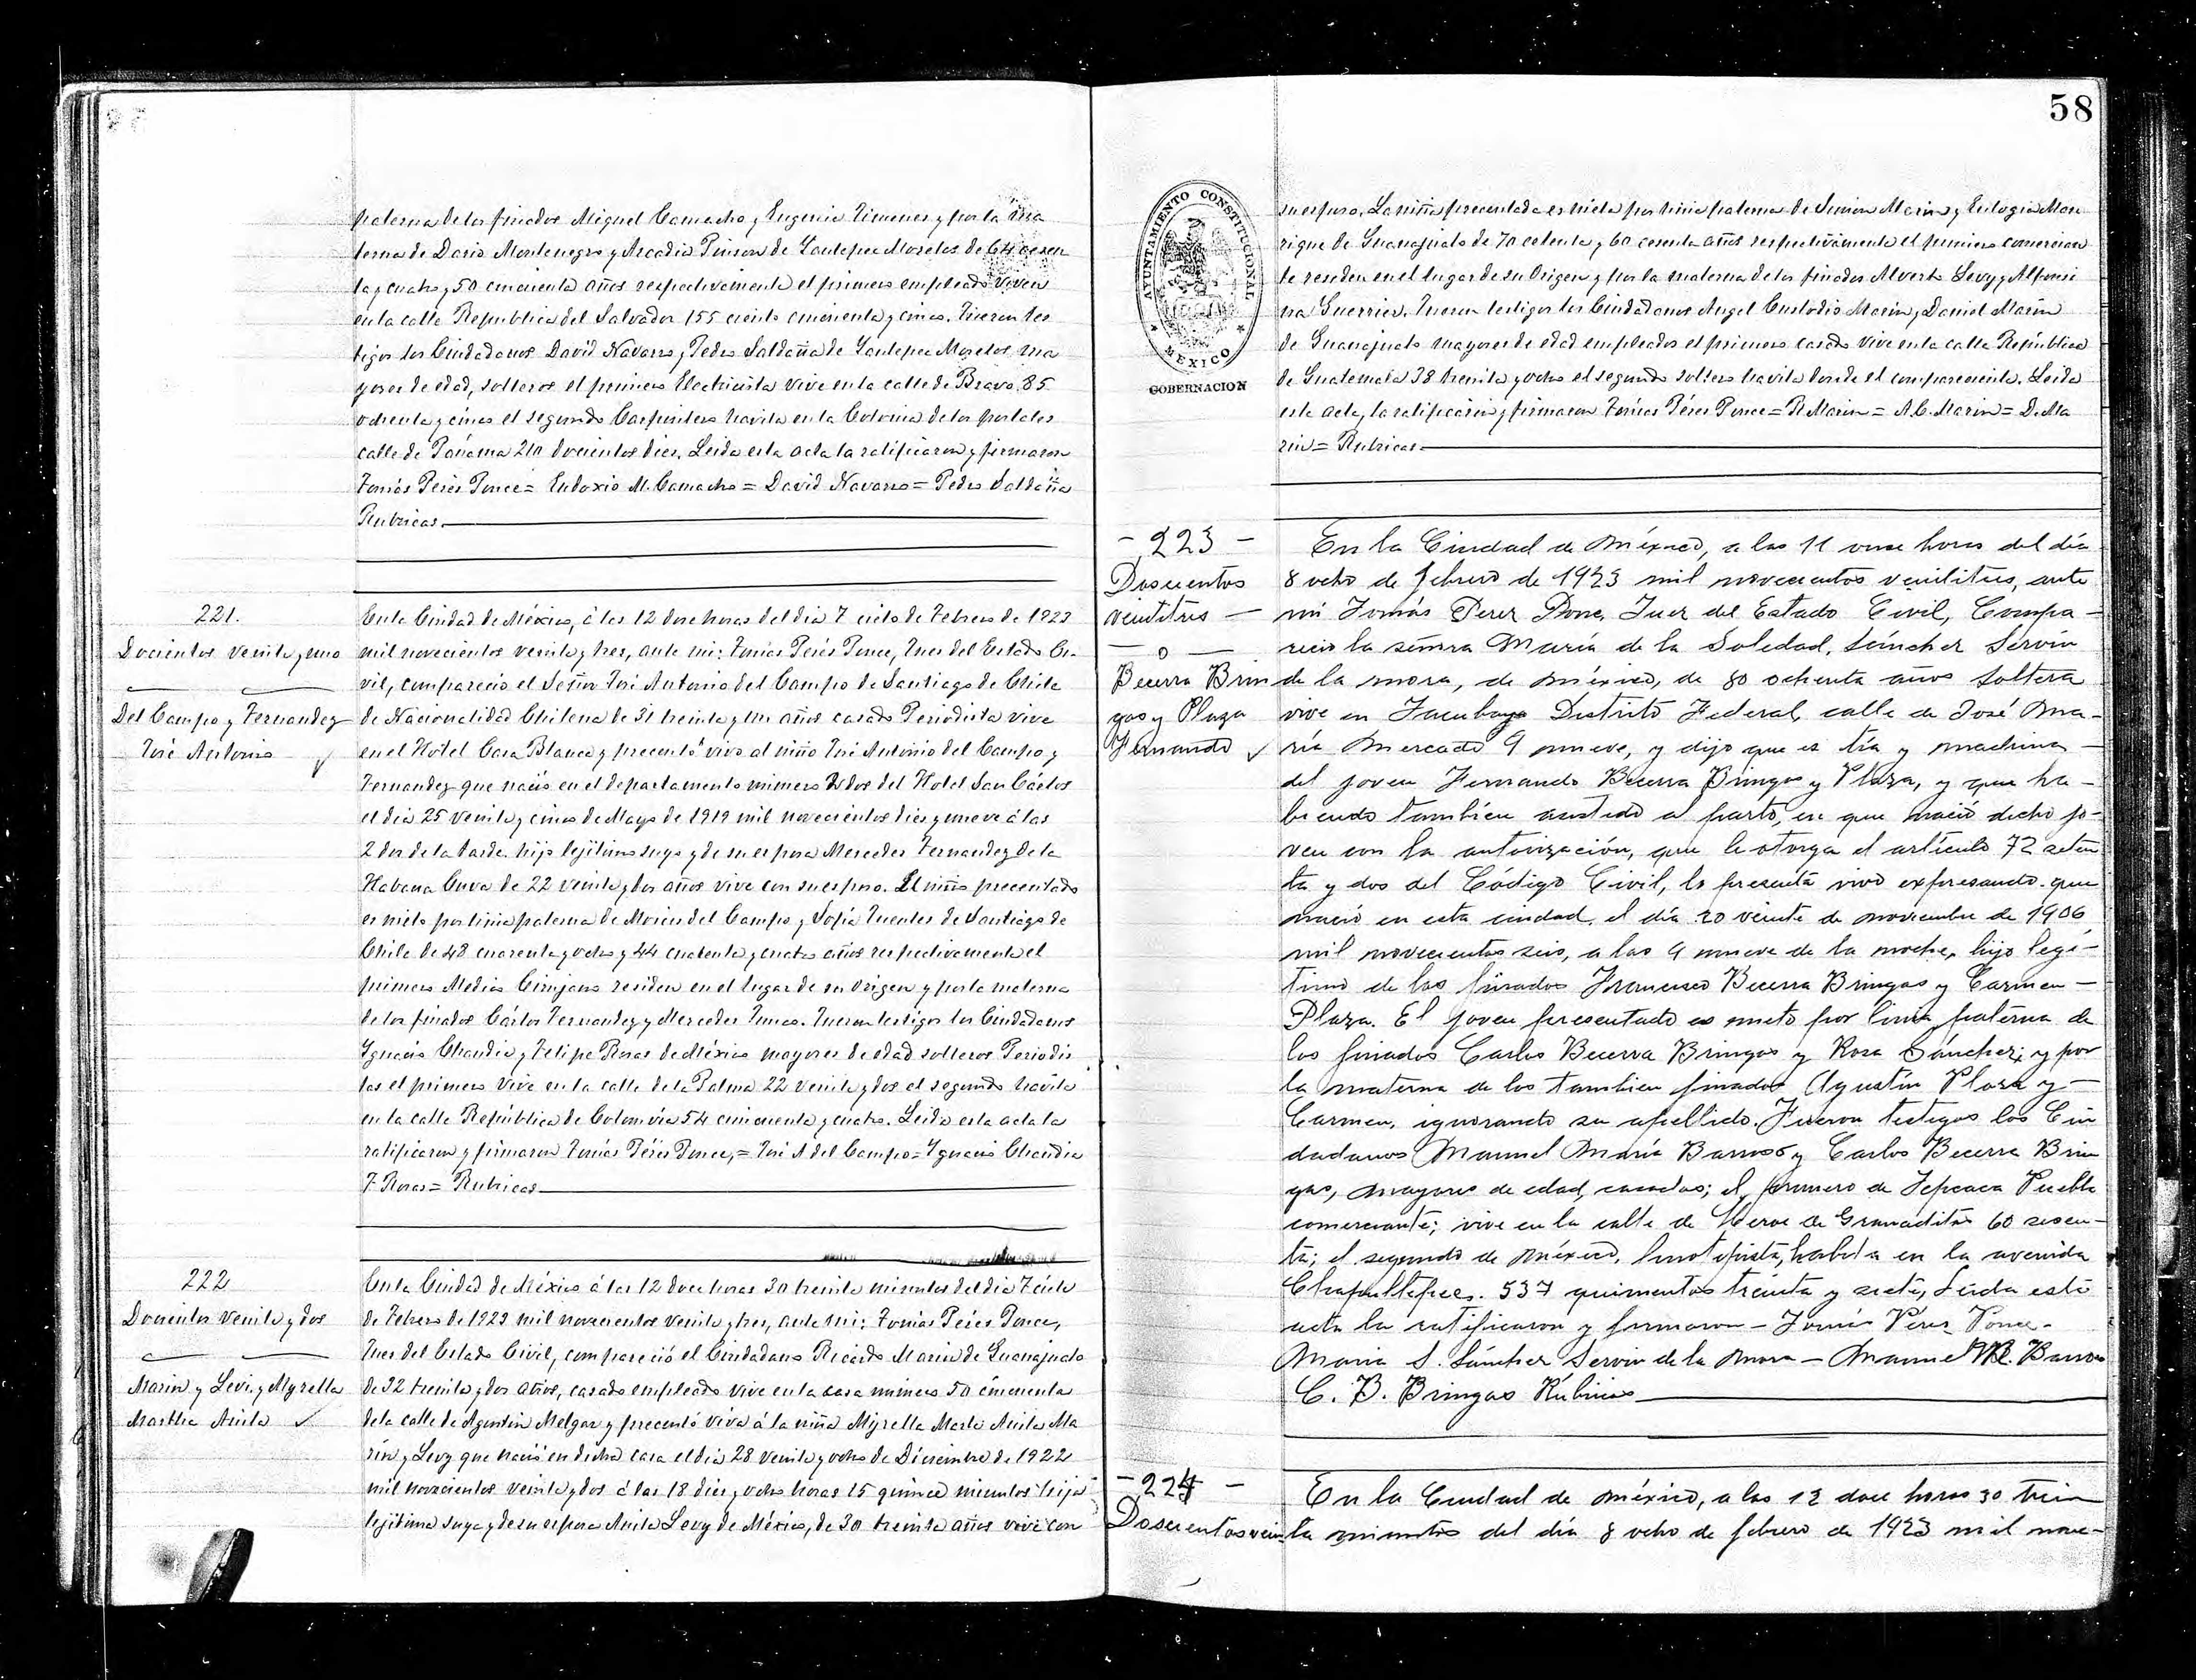 paterna de los finados Miguel Camacho y Eugenia Jimenes y por la ma
terna de Dario Montenegro y Arcadia Pinson de Yautepec Morelos de 64 cesen
ta y cuatro y 50 cincuenta años respectivamente el primero empleado viven
en la calle Republica del Salvador 155 ciento cincuenta y cinco. Fueron tes
tigos los Ciudadanos David Navarro y Pedro Saldaña de Yautepec Morelos ma
yores de edad, solteros el primero Electricista vive en la calle de Bravo 85
ochenta y cinco el segundo Carpintero havita en la Colonia de los portales
calle de Panama 210 docientos dies. Leida esta acta la ratificaron y firmaron
Tomás Perés Ponce = Eudoxio M. Camacho = David Navarro = Pedro Saldaña
Rubricas.
221.
Docientos veinte y uno
Del Campo y Fernandez
José Antonio
En la Ciudad de México, á las 12 doce horas del dia 7 ciete de Febrero de 1923
mil novecientos veinte y tres, ante mi: Tomás Perés Ponce, Jues del Estado Ci-
vil, compareció el Señor José Antonio del Campo de Santiago de Chile
de Nacionalidad Chilena de 31 treinta y un años casado Periodista vive
en el Hotel Casa Blanca y precentó vivo al niño José Antonio del Campo y
Fernandez que nació en el departamento número dos del Hotel San Cárlos
el dia 25 veinte y cinco de Mayo de 1919 mil novecientos dies y nueve á las
2 dos de la tarde. hijo lejitimo suyo y de su esposa Mercedes Fernandez de la
Habana Cuva de 22 veinte y dos años vive con su esposo. El niño precentado
es nieto por linia paterna de Moises del Campo y Sofía Fuentes de Santiago de
Chile de 48 cuarenta y ocho y 44 cuarenta y cuatro años respectivamente el
primero Medico Cirujano residen en el lugar de su origen y por la materna
de los finados Cárlos Fernandez y Mercedes Funes. Fueron testigos los Ciudadanos
Ygnacio Chandia y Felipe Rosas de México mayores de edad solteros Periodis
tas el primero vive en la calle de la Palma 22 veinte y dos el segundo havita
en la calle República de Colomvia 54 cincuenta y cuatro. Leida esta acta la
ratificaron y firmaron Tomás Pérés Ponce, = José A del Campo = Ygnacio Chandia
F. Rosas = Rubricas
222
Docientos veinte y dos
Marin y Levi. y Myrella
Martha Anita
En la Ciudad de México á las 12 doce horas 30 treinta minutos del dia 7 ciete
de Febrero de 1923 mil novecientos veinte y tres, ante mi: Tomás Perés Ponce,
Jues del Estado Civil, compareció el Ciudadano Ricardo Marin de Guanajuato
de 32 treinta y dos años, casado empleado vive en la casa número 50 cincuenta
de la calle de Agustin Melgar y precentó viva á la niña Myrella Marta Anita Ma
rin y Levy que nació en dicha casa el dia 28 veinte y ocho de Diciembre de 1922
mil novecientos veinte y dos á las 18 dies y ocho horas 15 quince minutos hija
lejitima suya y de su esposa Anita Levy de México, de 30 treinta años vive con
58
AYUNTAMIENTO CONSTITUCIONAL
MEXICO
GOBERNACION
su esposo. La niña precentada es nieta por linia paterna de Simon Marin y Eulogia Man
rique de Guanajuato de 70 cetenta y 60 cesenta años respectivamente el primero comercian
te residen en el lugar de su Origen y por la materna de los finados Alverto Levy y Alfonsi
na Guerrier. Fueron testigos los Ciudadanos Angel Custodio Marin y Daniel Marin
de Guanajuato mayores de edad empleados el primero casado vive en la calle República
de Guatemala 38 treinta y ocho el segundo soltero havita donde el compareciente. Leida
esta acta, la ratificaron y firmaron Tomás Pérés Ponce = R. Marin = A. C. Marin = D. Ma
rin = Rubricas.
- 223 -
Doscientos
veintitres —
— o —
Becerra Brin
gas y Plaza
Fernando
En la Ciudad de México, a las 11 once horas del día
8 ocho de febrero de 1923 mil novecientos veintitres, ante
mi Tomás Perez Ponce, Juez del Estado Civil, Compa-
reció la señora María de la Soledad, Sánchez Servin
de la mora, de méxico, de 80 ochenta años soltera
vive en Tacubaya Distrito Federal, calle de José Ma-
ría Mercado 9 nueve, y dijo que es tía y madrina —
del joven Fernando Becerra Bringas y Plaza, y que ha-
biendo tambien asistido al parto, en que nació dicho jo-
ven con la autorización, que le otorga el artículo 72 seten
ta y dos del Código Civil, lo presenta vivo expresando que
nació en esta ciudad, el día 20 veinte de noviembre de 1906
mil novecientos seis, a las 9 nueve de la noche, hijo legí-
timo de los finados Francisco Becerra Bringas y Carmen —
Plaza. El joven presentado es nieto por linia paterna de
los finados Carlos Becerra Bringas y Rosa Sánchez; y por
la materna de los tambien finados Agustín Plaza y —
Carmen, ignorando su apellido. Fueron testigos los Ciu
dadanos Manuel María Barroso y Carlos Becerra Brin
gas, mayores de edad, casados; el primero de Tepeaca Puebla
comerciante; vive en la calle de Heroe de Granaditas 60 sesen-
ta; el segundo de méxico, linotipista, habita en la avenida
Chapultepec. 537 quinientos treinta y siete, Leida esta
acta la ratificaron y firmaron — Tomás Pérez Ponce —
Maria S. Sánchez Servin de la Mora — Manuel M. Barroso
C. B. Bringas Rúbricas
- 224 -
Doscientos vein
En la Ciudad de méxico, a las 12 doce horas 30 trein
ta minutos del día 8 ocho de febrero de 1923 mil nove-